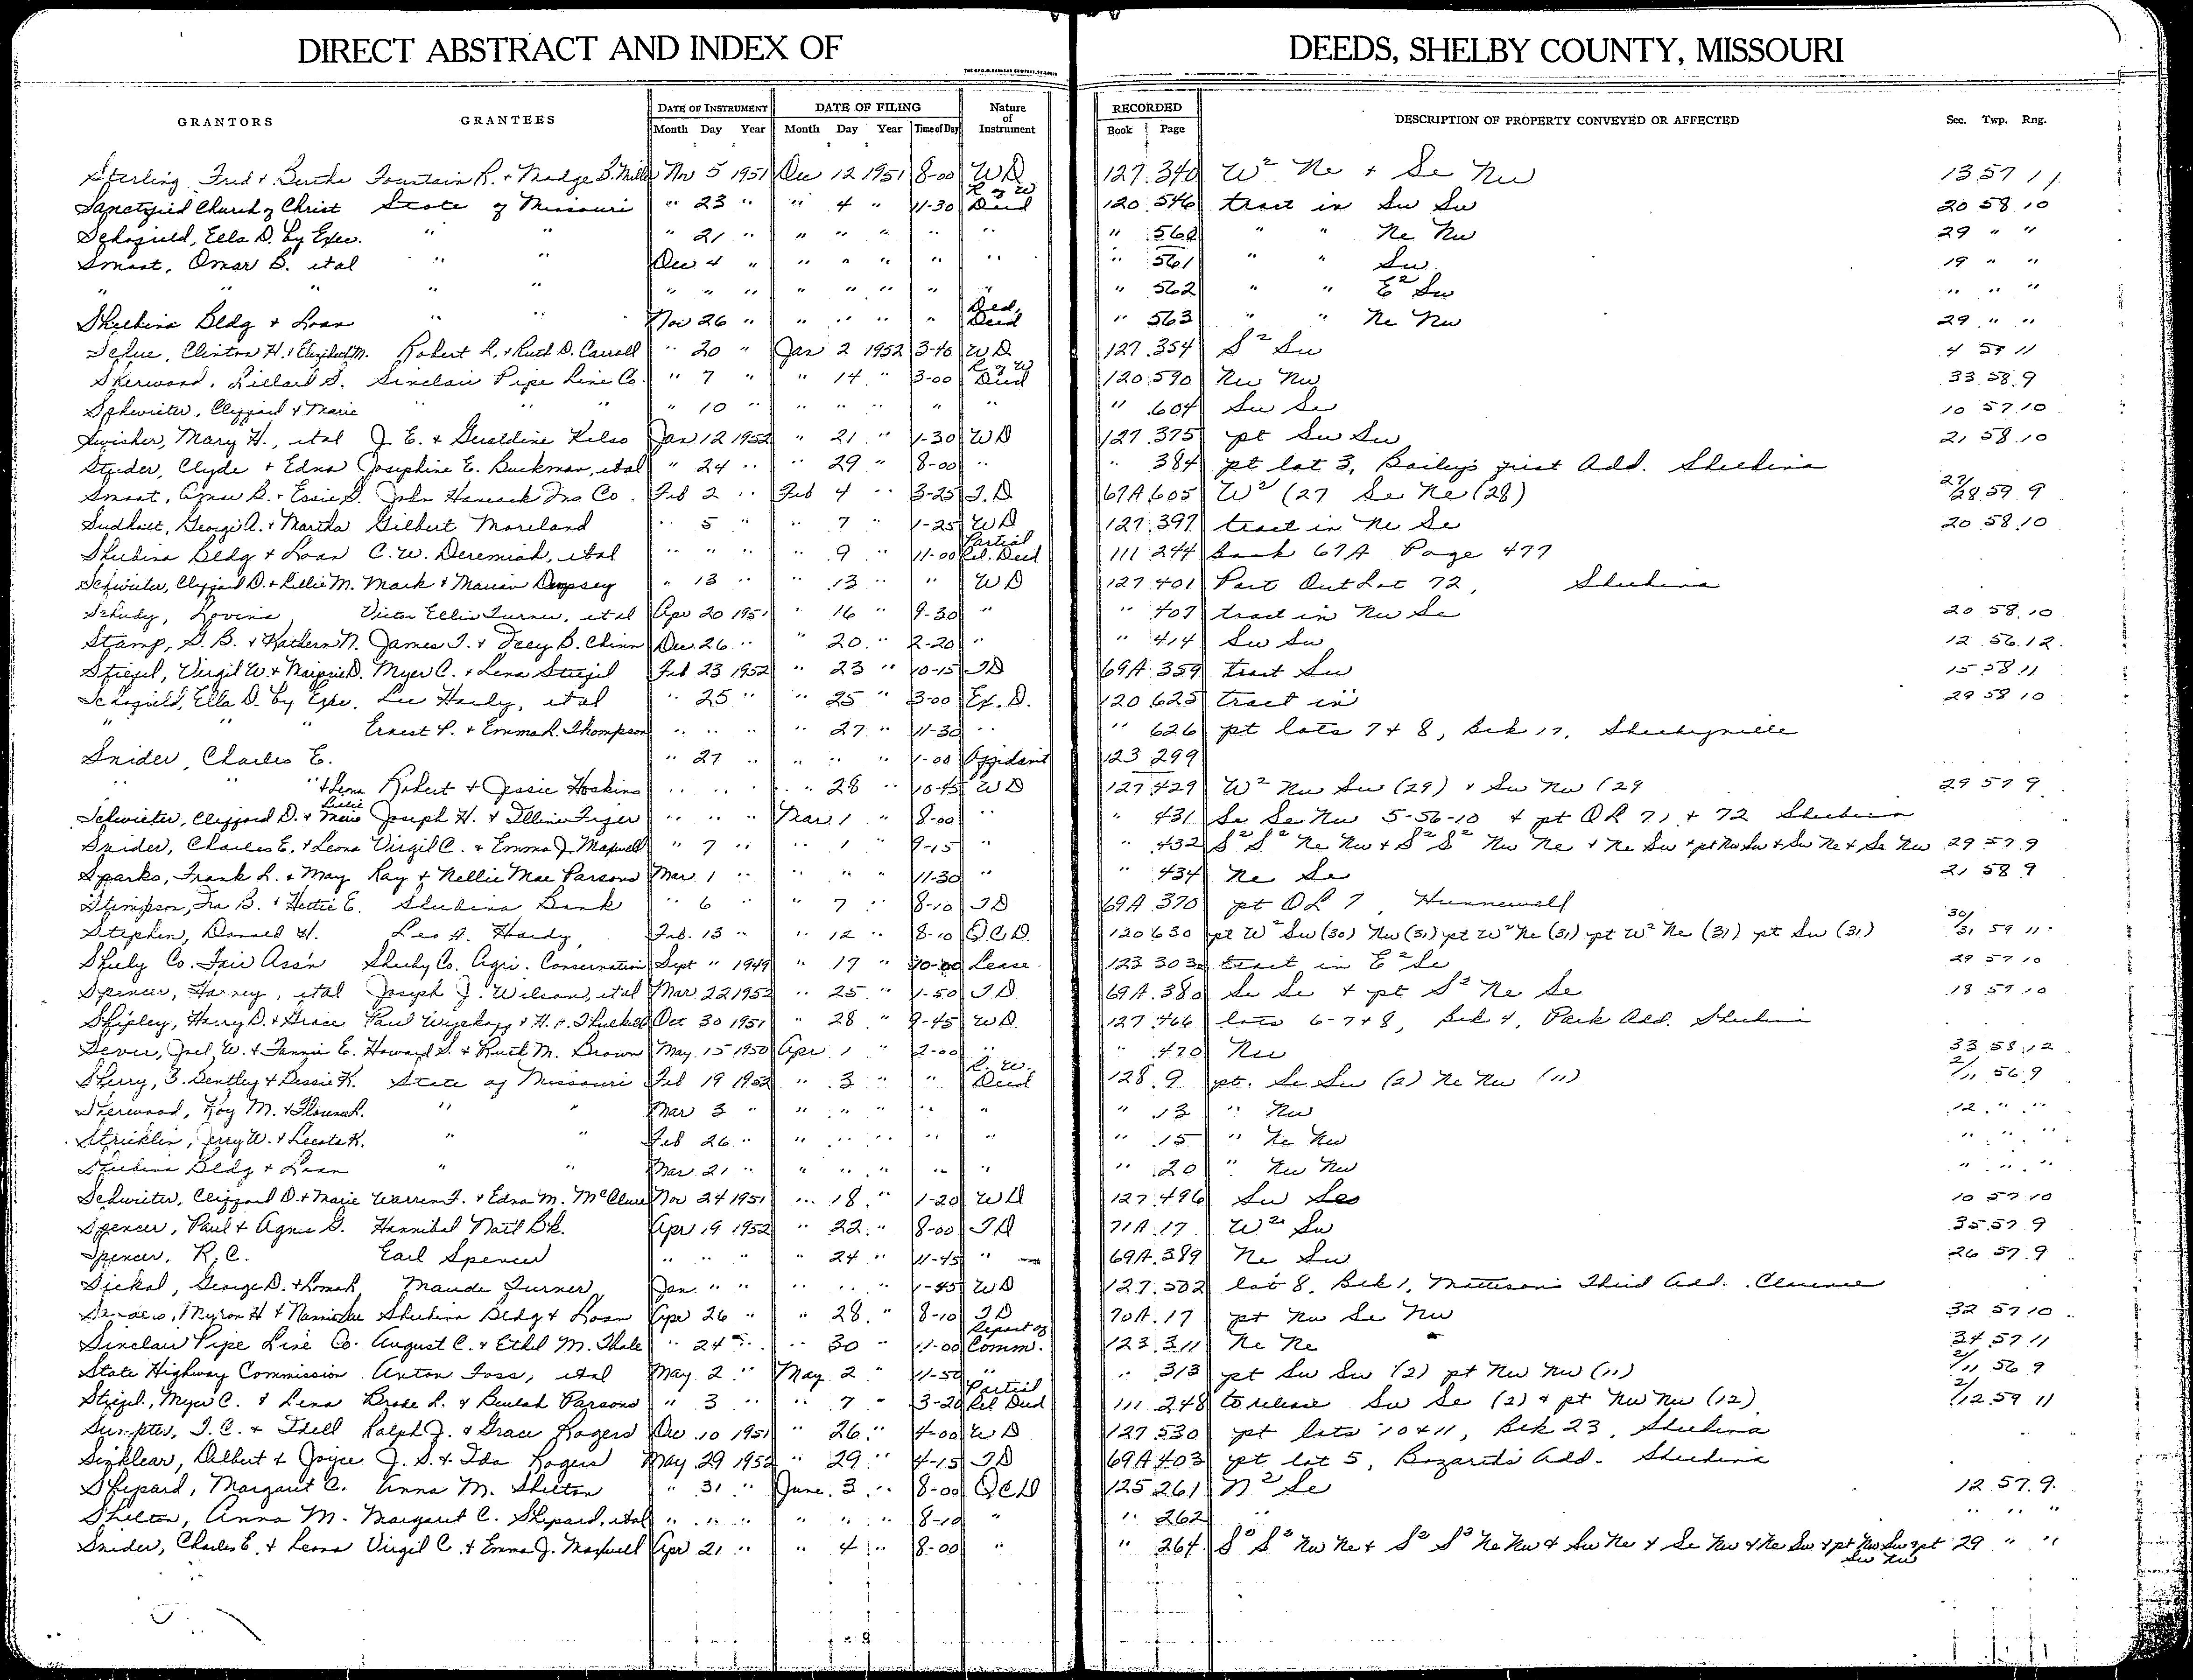 DIRECT ABSTRACT AND INDEX OF DEEDS, SHELBY COUNTY, MISSOURI
GRANTORS GRANTEES DATE OF INSTRUMENT DATE OF FILING Nature of Instrument RECORDED DESCRIPTION OF PROPERTY CONVEYED OR AFFECTED Sec. Twp. Rng.
Month Day Year Month Day Year Time of Day Book Page
Sterling, Fred & Bertha Fountain R. & Madge B. Miller Nov 5 1951 Dec 12 1951 8-00 WD 127 340 W² Ne & Se Nw 13 57 11
Sanctified Church of Christ State of Missouri " 23 " " 4 " 11-30 R of W Deed 120 546 tract in Sw Sw 20 58 10
Schofield, Ella D. by Exec. " " " 21 " " " " " " " 560 " " Ne Nw 29 " "
Smoot, Omar B. etal " " Dec 4 " " " " " " " 561 " " Sw 19 " "
" " " " " " " " " " " " " " 562 " " E² Sw " " "
Shelbina Bldg & Loan " " Nov 26 " " " " " Ded. Deed " 563 " " Ne Nw 29 " "
Schue, Clinton H. & Elizabeth M. Robert L. & Ruth D. Carroll " 20 " Jan 2 1952 3-40 WD 127 354 S² Sw 4 57 11
Sherwood, Lillard S. Sinclair Pipe Line Co. " 7 " " 14 " 3-00 R of W Deed 120 590 Nw Nw 33 58 9
Schwieter, Clifford & Marie " " " " 10 " " " " " " " 604 Sw Se 10 57 10
Swisher, Mary H., etal J. E. & Gueldine Kelso Jan 12 1952 " 21 " 1-30 WD 127 375 pt Sw Sw 21 58 10
Studer, Clyde & Edna Josephine E. Buckman, etal " 24 " " 29 " 8-00 " " 384 pt lot 3, Baileys first Add. Shelbina
Smoot, Omar B. & Essie S. John Hancock Ins Co. Feb 2 " Feb 4 " 3-25 T.D. 67A 605 W² (27 Se Ne (28) 27/28 59 9
Sudholt, George A. & Martha Gilbert Moreland " 5 " " 7 " 1-25 WD 127 397 tract in Ne Se 20 58 10
Shelbina Bldg & Loan C. W. Deremiah, etal " " " " 9 " 11-00 Partial Rel. Deed 111 244 book 67A Page 477
Schwieter, Clifford D. & Lillie M. Mark & Marian Dempsey " 13 " " 13 " " WD 127 401 Part Out Lot 72, Shelbina
Schudy, Lovina Victor Ellis Turner, etal Apr 20 1951 " 16 " 9-30 " " 407 tract in Nw Se 20 58 10
Stamp, S. B. & Kathern N. James T. & Fcey B. Chinn Dec 26 " " 20 " 2-20 " " 414 Sw Sw 12 56 12
Stiegel, Virgil W. & Marjorie D. Myer C. & Lena Stiegel Feb 23 1952 " 23 " 10-15 TD 69A 359 tract Sw 15 58 11
Schofield, Ella D. by Exe. Lee Hardy, etal " 25 " " 25 " 3-00 Ex. D. 120 625 tract in 29 58 10
" " " Ernest P. & Emma L. Thompson " " " " 27 " 11-30 " " 626 pt lots 7 & 8, Bck 17, Shelbyville
Snider, Charles E. " 27 " " " " 1-00 Affidavit 123 299
" " " & Leona Robert & Jessie Hoskins " " " " 28 " 10-45 WD 127 429 W² Nw Sw (29) & Sw Nw (29 29 57 9
Schwieter, Clifford D. & Lillie Marie Joseph H. & Tillie Figer " " " Mar 1 " 8-00 " " 431 Se Se Nw 5-56-10 & pt OL 71 & 72 Shelbina
Snider, Charles E. & Leona Virgil C. & Emma J. Maxwell " 7 " " 1 " 9-15 " " 432 S² S² Ne Nw & S² S² Nw Ne & Ne Sw & pt Nw Sw & Sw Ne & Se Nw 29 57 9
Sparks, Frank L. & May Ray & Nellie Mae Parsons Mar. 1 " " " " 11-30 " " 434 Ne Se 21 58 9
Stimpson, Ira B. & Hettie E. Shelbina Bank " 6 " 7 " 8-10 TD 69A 370 pt OL 7, Hunnewell
Stephen, Donald H. Leo A. Hardy, Feb. 13 " " 12 " 8-10 QCD. 120 630 pt W² Sw (30) Nw (31) pt W² Ne (31) pt W² Ne (31) pt Sw (31) 30/31 59 11
Shelby Co. Fair Ass'n Shelby Co. Agri. Conservation Sept " 1949 " 17 " 10-00 Lease 123 303 tract in E² Se 29 57 10
Spencer, Harney, etal Joseph J. Wilson, etal Mar. 22 1952 " 25 " 1-50 TD 69A 380 Se Se & pt S² Ne Se 18 59 10
Shipley, Harry D. & Grace Paul Wyckoff & H. A. Thulkell Oct 30 1951 " 28 " 9-45 WD. 127 466 lots 6-7 & 8, Bck 4, Park Add. Shelbina
Sever, Joel W. & Fannie E. Howard S. & Ruth M. Brown May 15 1950 Apr 1 " 2-00 " " 470 Nw 33 58 12
Sherry, B. Bentley & Bessie K. State of Missouri Feb 19 1952 " 3 " " R. W. Deed 128 9 pt. Se Sw (2) Ne Nw (11) 2/11 56 9
Sherwood, Roy M. & Flouna L. " " Mar 3 " " " " " " " 13 " Nw 12 " "
Stricklin, Jerry W. & Leeota K. " " Feb 26 " " " " " " " 15 " Ne Nw " " "
Shelbina Bldg & Loan " " Mar. 21 " " " " " " " 20 " Nw Nw " " "
Schwieter, Clifford D. & Marie Warren F. & Edna M. McClure Nov 24 1951 " 18 " 1-20 WD 127 496 Sw Se 10 57 10
Spencer, Paul & Agnes G. Hannibal Natl Bk. Apr 19 1952 " 22 " 8-00 TD 71A 17 W² Sw 35 57 9
Spencer, R. C. Earl Spencer " " " " 24 " 11-45 " 69A 389 Ne Sw 26 57 9
Sickal, George D. & Loma L. Maude Turner Jan " " " " " 1-45 WD 127 502 lot 8, Bck 1, Mattison's Third Add. Clarence
Myron H & Nannie Lee Shelbina Bldg & Loan Apr 26 " " 28 " 8-10 TD 70A 17 pt Nw Se Nw 32 57 10
Sinclair Pipe Line Co. August C. & Ethel M. Thale " 24 " " 30 " 11-00 Report of Comm. 123 311 Ne Ne 34 57 11
State Highway Commission Anton Foss, etal May 2 " May 2 " 11-50 " " 313 pt Sw Sw (2) pt Nw Nw (11) 2/11 56 9
Stiegel, Myer C. & Lena Brake L. & Beulah Parsons " 3 " " 7 " 3-20 Partial Rel Deed 111 248 to release Sw Se (2) & pt Nw Nw (12) 2/12 59 11
Sumpter, T. C. & Idell Ralph J. & Grace Rogers Dec 10 1951 " 26 " 4-00 WD 127 530 pt lots 10 & 11, Bck 23, Shelbina
Sinklear, Delbert & Joyce J. S. & Ida Rogers May 29 1952 " 29 " 4-15 TD 69A 403 pt lot 5, Bozarth's Add. Shelbina
Shepard, Margaret C. Anna M. Shelton " 31 " June 3 " 8-00 QCD 125 261 N² Se 12 57 9
Shelton, Anna M. Margaret C. Shepard, etal " " " " " " 8-10 " " 262 " " " "
Snider, Charles E. & Leona Virgil C. & Emma J. Maxwell Apr 21 " " 4 " 8-00 " " 264 S² S² Nw Ne & S² S² Ne Nw & Sw Ne & Se Nw & Ne Sw & pt Nw Sw & pt Sw Nw 29 " "